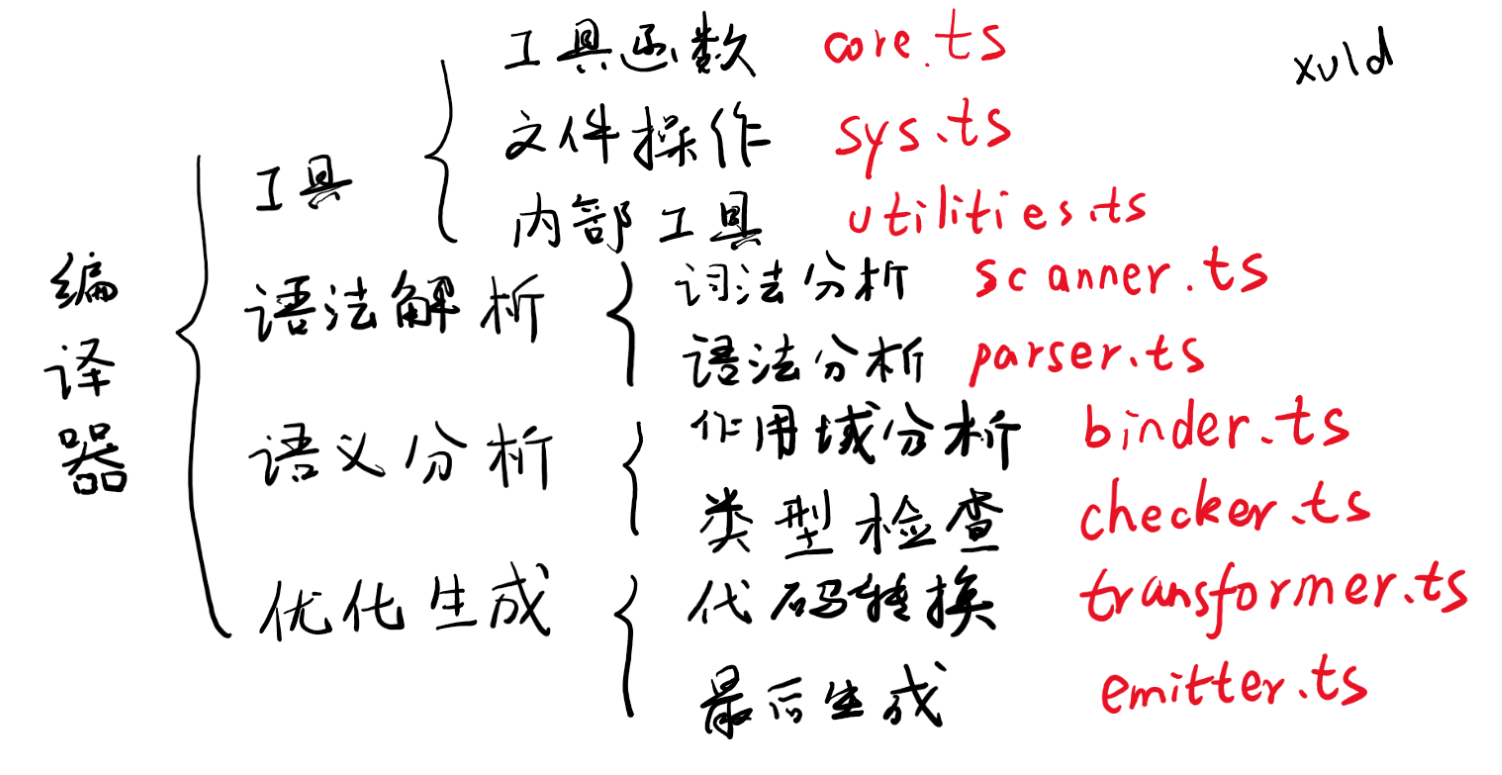 xuld
编译器
工具
工具函数 core.ts
文件操作 sys.ts
内部工具 utilities.ts
语法解析
词法分析 scanner.ts
语法分析 parser.ts
语义分析
作用域分析 binder.ts
类型检查 checker.ts
优化生成
代码转换 transformer.ts
最后生成 emitter.ts